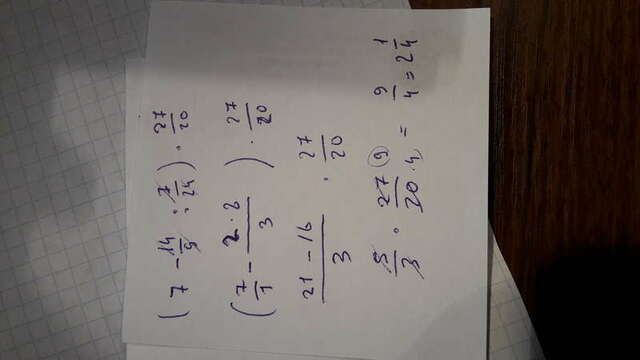 (7 - 14/9 : 7/24) · 27/20
(7/1 - 2·8/3) · 27/20
21-16/3 · 27/20
5/3 · 27 (9)/20·4 = 9/4 = 2 1/4